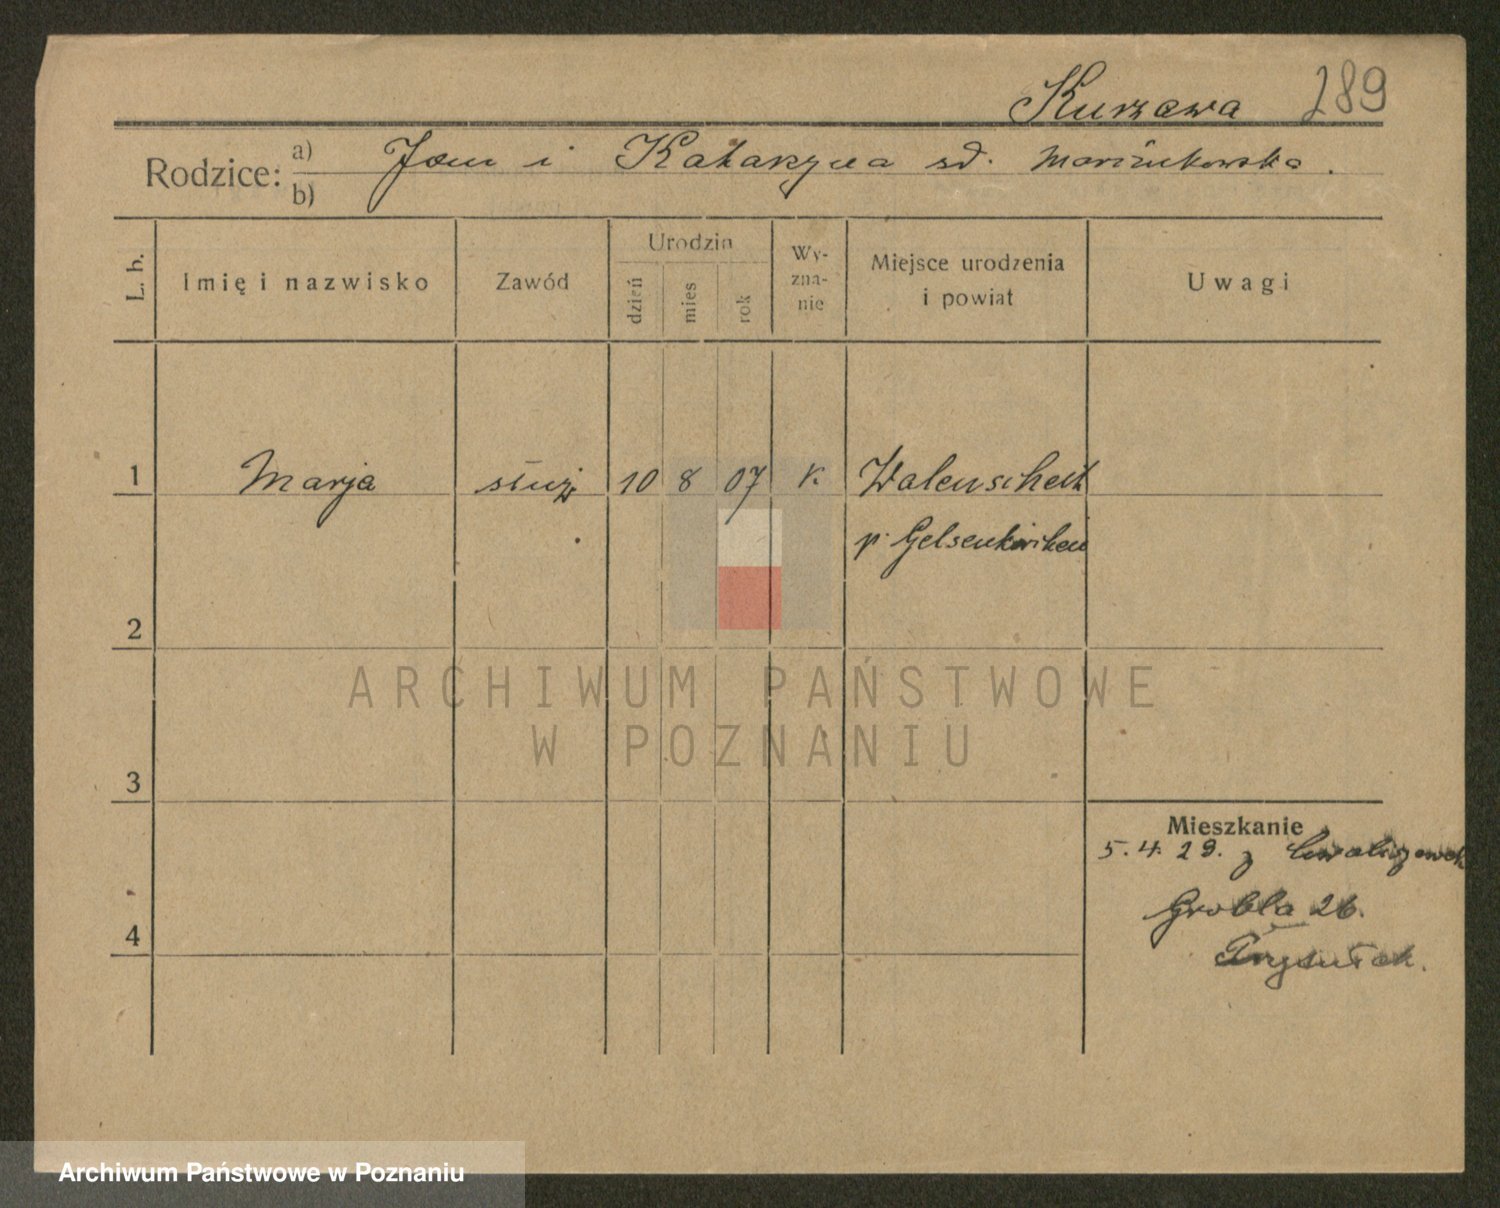 Kurzawa 289
Rodzice: a) b) Jan i Katarzyna sd. Marcinkowska.
L. b. Imię i nazwisko Zawód Urodzin dzień mies rok Wy-zna-nie Miejsce urodzenia i powiat Uwagi
1 Marja służ. 10 8 07 K. Walenscheit
p. Gelsenkirchen
2
ARCHIWUM PAŃSTWOWE
W POZNANIU
3
Mieszkanie
5. 4. 29. z
Grobla 26.
4
Archiwum Państwowe w Poznaniu